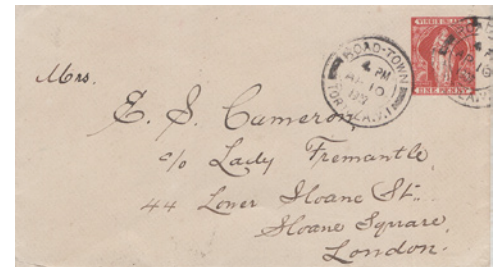 VIRGIN ISLANDS
ONE PENNY
ROAD-TOWN
4 PM
AP 10
TORTOLA.V.I
Mrs.
E. S. Cameron,
c/o Lady Fremantle
44 Lower Sloane St..
Sloane Square,
London.